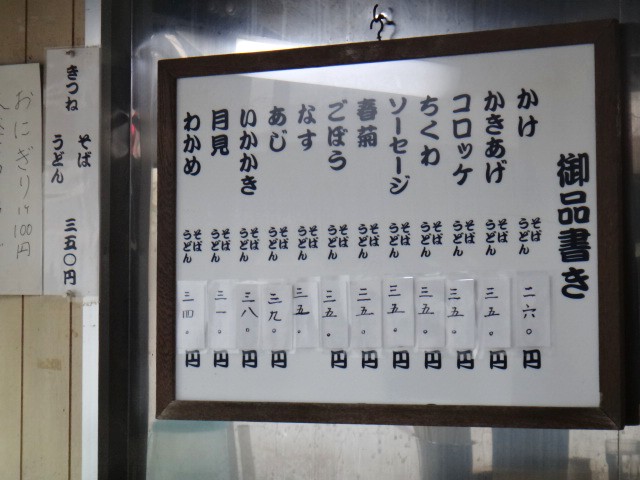 御品書き
かけ そば うどん 二六〇円
かきあげ そば うどん 三五〇円
コロッケ そば うどん 三五〇円
ちくわ そば うどん 三五〇円
ソーセージ そば うどん 三五〇円
春菊 そば うどん 三五〇円
ごぼう そば うどん 三五〇円
なす そば うどん 三五〇
あじ そば うどん 三九〇円
いかかき そば うどん 三八〇円
月見 そば うどん 三一〇円
わかめ そば うどん 三四〇円
きつね そば うどん 三五〇円
おにぎり1ケ100円